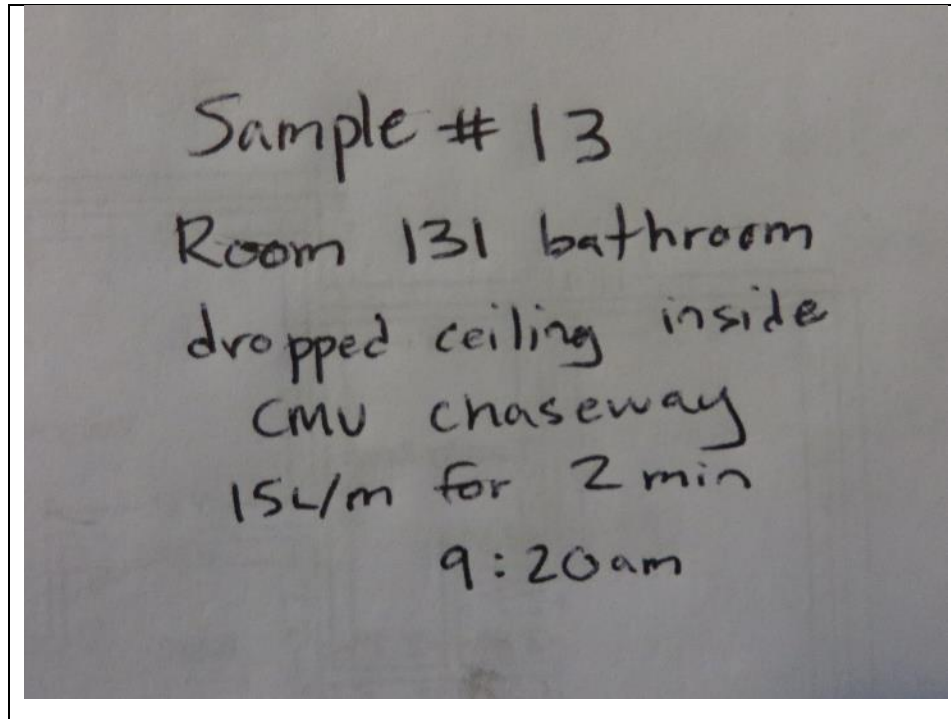 Sample # 13
Room 131 bathroom
dropped ceiling inside
CMU chaseway
15L/m for 2 min
9:20am